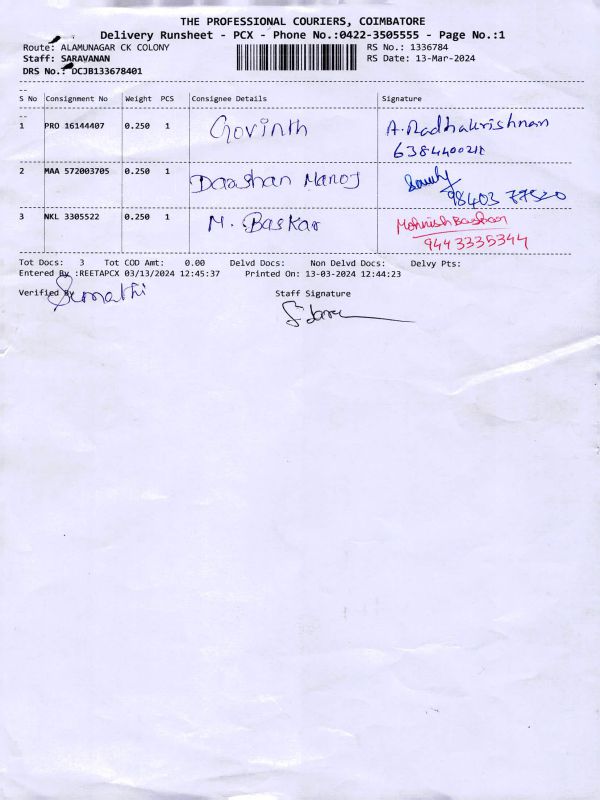 THE PROFESSIONAL COURIERS, COIMBATORE
Delivery Runsheet - PCX - Phone No.:0422-3505555 - Page No.:1
Route: ALAMUNAGAR CK COLONY RS No.: 1336784
Staff: SARAVANAN RS Date: 13-Mar-2024
DRS No.: DCJB133678401
S No Consignment No Weight PCS Consignee Details Signature
1 PRO 16144407 0.250 1 Govinth A. Radhakrishnan
2 MAA 572003705 0.250 1 Daashan Manoj
98403 77520
3 NKL 3305522 0.250 1 M. Baskar Mohnish Baskar
9443335344
Tot Docs: 3 Tot COD Amt: 0.00 Delvd Docs: Non Delvd Docs: Delvy Pts:
Entered By :REETAPCX 03/13/2024 12:45:37 Printed On: 13-03-2024 12:44:23
Verified By Staff Signature
Sumathi